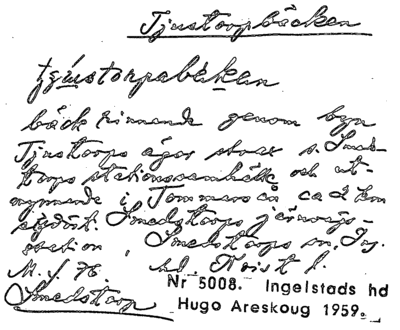 Tjustorpsbäcken
bäck rinnande genom byn
Tjustorps ägor strax s. Smeds-
torps stationssamhälle och ut-
mynnande i Tommarps ån ca 2 km
sydöst. Smedstorps järnvägs-
station. Smedstorps sn, Ing.
hd
Smedstorp
Nr 5008. Ingelstads hd
Hugo Areskoug 1959.